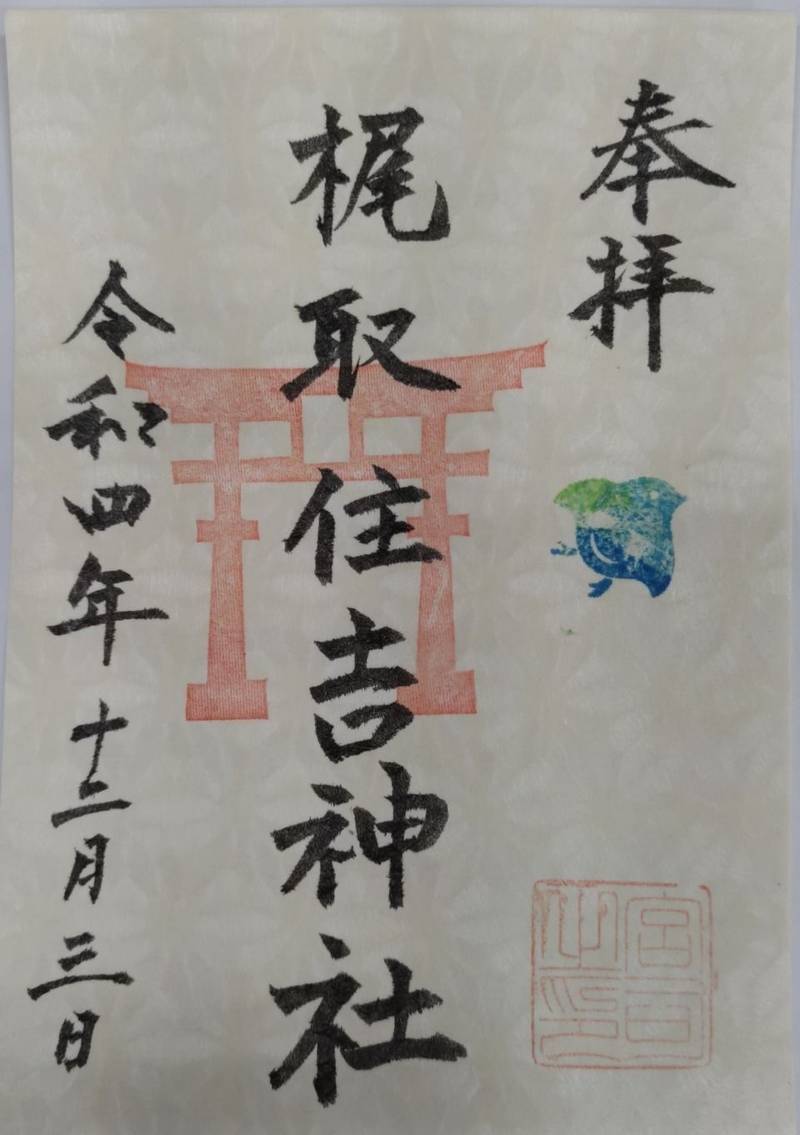 奉拝
梶取住吉神社
令和四年十二月三日